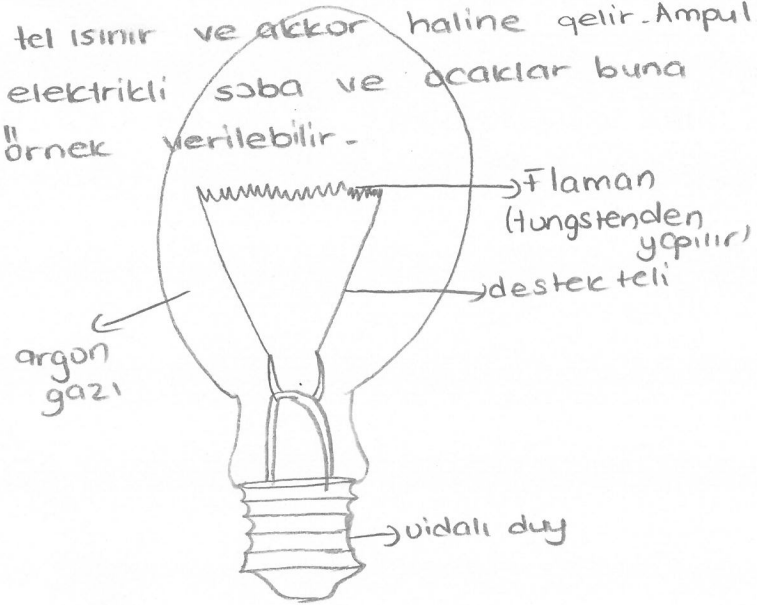 tel ısınır ve akkor haline gelir. Ampul
elektrikli soba ve ocaklar buna
örnek verilebilir.
Flaman
(tungstenden
yapılır)
destek teli
argon
gazı
vidalı duy